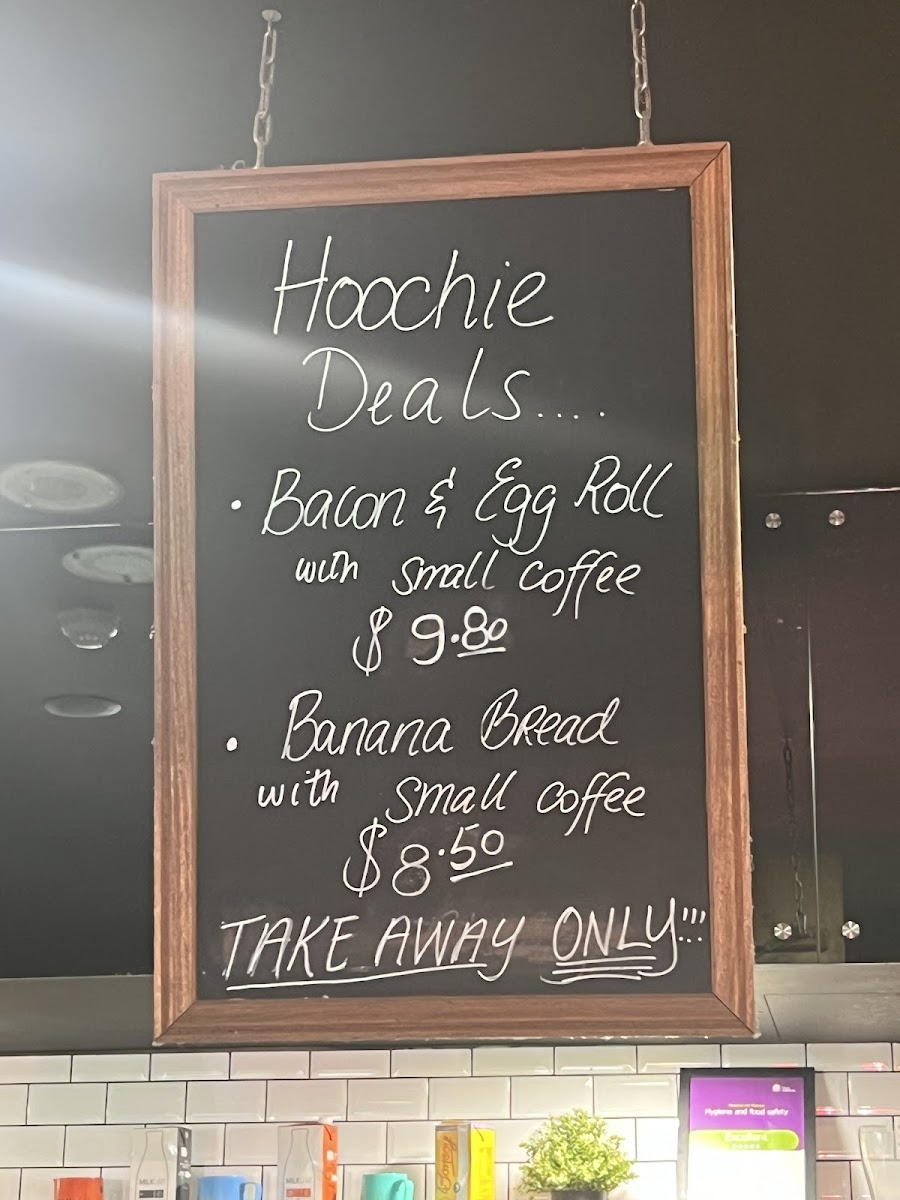 Hoochie
Deals....
• Bacon & Egg Roll
with small coffee
$9.80
• Banana Bread
with small coffee
$8.50
TAKE AWAY ONLY!!!
Hygiene and food safety
Excellent
MILKLAB
MILKLAB
Bonsoy